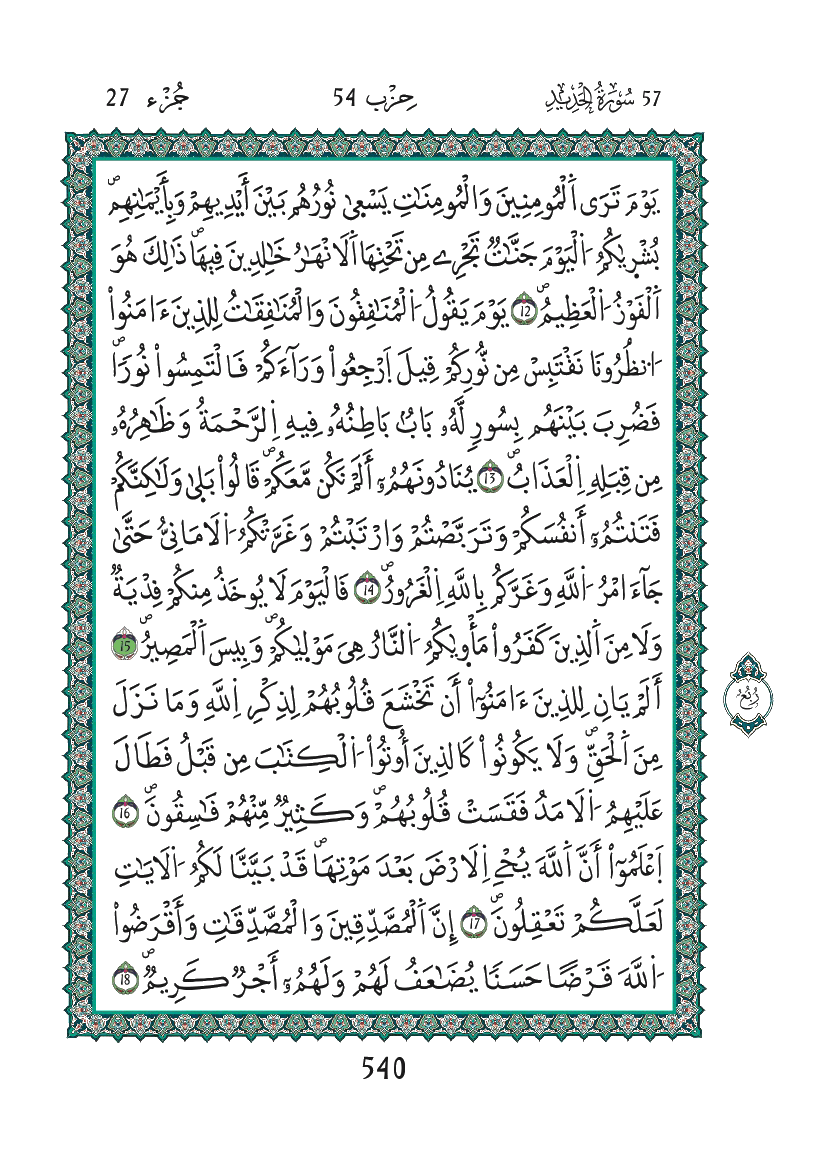 57 سُورَةُ الْحَدِيدِ
حِزْب 54
جُزْء 27
يَوْمَ تَرَى اَ۬لْمُومِنِينَ وَالْمُومِنَٰتِ يَسْع۪يٰ نُورُهُم بَيْنَ أَيْدِيهِمْ وَبِأَيْمَٰنِهِمۖ
بُشْر۪يٰكُمُ اُ۬لْيَوْمَ جَنَّٰتٞ تَجْرِے مِن تَحْتِهَا اَ۬لَانْهَٰرُ خَٰلِدِينَ فِيهَاۖ ذَٰلِكَ هُوَ
اَ۬لْفَوْزُ اُ۬لْعَظِيمُۖ 12 يَوْمَ يَقُولُ اُ۬لْمُنَٰفِقُونَ وَالْمُنَٰفِقَٰتُ لِلذِينَ ءَامَنُواْ
اُ۟نظُرُونَا نَقْتَبِسْ مِن نُّورِكُمْ قِيلَ اَ۪رْجِعُواْ وَرَآءَكُمْ فَالْتَمِسُواْ نُوراٗۖ
فَضُرِبَ بَيْنَهُم بِسُورٖ لَّهُۥ بَابُۢ بَاطِنُهُۥ فِيهِ اِ۬لرَّحْمَةُ وَظَٰهِرُهُۥ
مِن قِبَلِهِ اِ۬لْعَذَابُۖ 13 يُنَادُونَهُمُۥٓ أَلَمْ نَكُن مَّعَكُمْۖ قَالُواْ بَل۪يٰ وَلَٰكِنَّكُمْ
فَتَنتُمُۥٓ أَنفُسَكُمْ وَتَرَبَّصْتُمْ وَارْتَبْتُمْ وَغَرَّتْكُمُ اُ۬لَامَانِيُّ حَتَّىٰ
جَآءَ امْرُ اُ۬للَّهِ وَغَرَّكُم بِاللَّهِ اِ۬لْغَرُورُۖ 14 فَالْيَوْمَ لَا يُوخَذُ مِنكُمْ فِدْيَةٞ
وَلَا مِنَ اَ۬لذِينَ كَفَرُواْ مَأْو۪يٰكُمُ اُ۬لنَّارُ هِىَ مَوْل۪يٰكُمْۖ وَبِيسَ اَ۬لْمَصِيرُۖ 15
أَلَمْ يَانِ لِلذِينَ ءَامَنُوٓاْ أَن تَخْشَعَ قُلُوبُهُمْ لِذِكْرِ اِ۬للَّهِ وَمَا نَزَلَ
مِنَ اَ۬لْحَقِّۖ وَلَا يَكُونُواْ كَالذِينَ أُوتُواْ اُ۬لْكِتَٰبَ مِن قَبْلُ فَطَالَ
عَلَيْهِمُ اُ۬لَامَدُ فَقَسَتْ قُلُوبُهُمْۖ وَكَثِيرٞ مِّنْهُمْ فَٰسِقُونَۖ 16
اَ۪عْلَمُوٓاْ أَنَّ اَ۬للَّهَ يُحْيِ اِ۬لَارْضَ بَعْدَ مَوْتِهَاۖ قَدْ بَيَّنَّا لَكُمُ اُ۬لَايَٰتِ
لَعَلَّكُمْ تَعْقِلُونَۖ 17 إِنَّ اَ۬لْمُصَّدِّقِينَ وَالْمُصَّدِّقَٰتِ وَأَقْرَضُواْ
اُ۬للَّهَ قَرْضًا حَسَنٗا يُضَٰعَفُ لَهُمْ وَلَهُمُۥٓ أَجْرٞ كَرِيمٞۖ 18
رُبُع
540